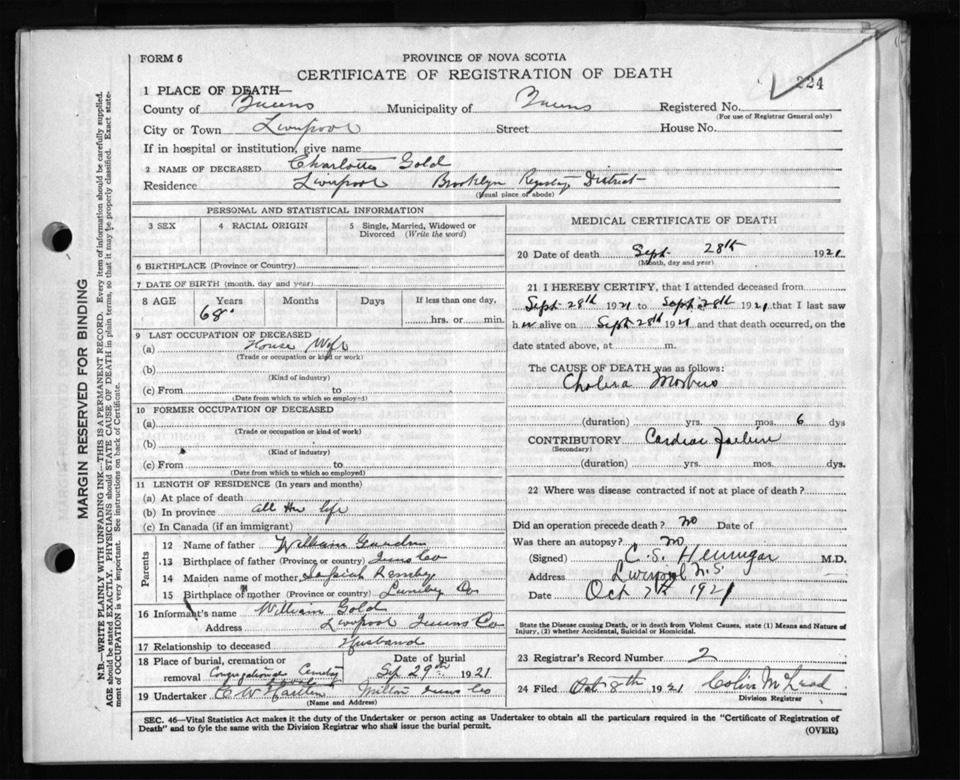 FORM 6
PROVINCE OF NOVA SCOTIA
CERTIFICATE OF REGISTRATION OF DEATH
224
1 PLACE OF DEATH—
County of Queens Municipality of Queens Registered No.
(For use of Registrar General only)
City or Town Liverpool Street House No.
If in hospital or institution, give name
2 NAME OF DECEASED Charlotte Gold
Residence Liverpool Brooklyn Registry District
(Usual place of abode)
MARGIN RESERVED FOR BINDING
N.B.—WRITE PLAINLY WITH UNFADING INK—THIS IS A PERMANENT RECORD. Every item of information should be carefully supplied.
AGE should be stated EXACTLY. PHYSICIANS should STATE CAUSE OF DEATH in plain terms, so that it may be properly classified. Exact state-
ment of OCCUPATION is very important. See instructions on back of Certificate.
PERSONAL AND STATISTICAL INFORMATION
3 SEX 4 RACIAL ORIGIN 5 Single, Married, Widowed or
Divorced (Write the word)
6 BIRTHPLACE (Province or Country)
7 DATE OF BIRTH (month, day and year)
8 AGE Years Months Days If less than one day,
68 hrs. or min.
9 LAST OCCUPATION OF DECEASED
(a) House Wife
(Trade or occupation or kind or work)
(b)
(Kind of industry)
(c) From to
(Date from which to which so employed)
10 FORMER OCCUPATION OF DECEASED
(a)
(Trade or occupation or kind of work)
(b)
(Kind of industry)
(c) From to
(Date from which to which so employed)
11 LENGTH OF RESIDENCE (In years and months)
(a) At place of death
(b) In province all her life
(c) In Canada (if an immigrant)
Parents
12 Name of father William
13 Birthplace of father (Province or country) Queens Co
14 Maiden name of mother
15 Birthplace of mother (Province or country) Lunenburg Co
16 Informant's name William Gold
Address Liverpool Queens Co
17 Relationship to deceased Husband
18 Place of burial, cremation or Date of burial
removal Congregational Cemetery Sep 29th 1921
19 Undertaker C W Milton Queens Co
(Name and Address)
MEDICAL CERTIFICATE OF DEATH
20 Date of death Sept 28th 1921
(Month, day and year)
21 I HEREBY CERTIFY, that I attended deceased from
Sept 28th 1921 to Sept 28th 1921 that I last saw
her alive on Sept 28th 1921 and that death occurred, on the
date stated above, at m.
The CAUSE OF DEATH was as follows:
Cholera Morbus
(duration) yrs. mos. 6 dys
CONTRIBUTORY Cardiac Failure
(Secondary)
(duration) yrs. mos. dys.
22 Where was disease contracted if not at place of death?
Did an operation precede death? no Date of
Was there an autopsy? no
(Signed) C. S. Hennigar M.D.
Address Liverpool N.S.
Date Oct 7th 1921
State the Disease causing Death, or in death from Violent Causes, state (1) Means and Nature of
Injury, (2) whether Accidental, Suicidal or Homicidal.
23 Registrar's Record Number 2
24 Filed Oct 8th 1921 Colin McLeod
Division Registrar
SEC. 46—Vital Statistics Act makes it the duty of the Undertaker or person acting as Undertaker to obtain all the particulars required in the "Certificate of Registration of
Death" and to fyle the same with the Division Registrar who shall issue the burial permit.
(OVER)